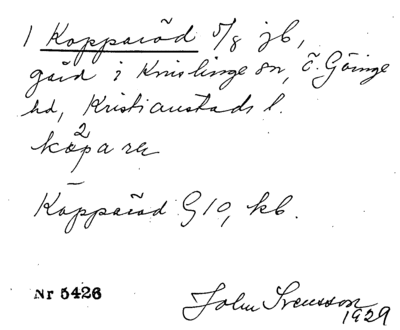 1 Kopparöd 5/8 jb,
gård i Knislinge sn, Ö. Göinge
hd, Kristianstads l.
2
kåpa re
Kopparöd G10, kb.
Nr 5426
John Svensson
1929